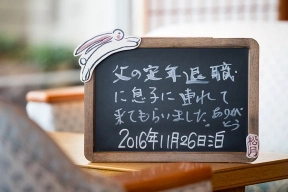 父の定年退職
に息子に連れて
来てもらいました。ありがとう
2016年11月26日(土)
松月